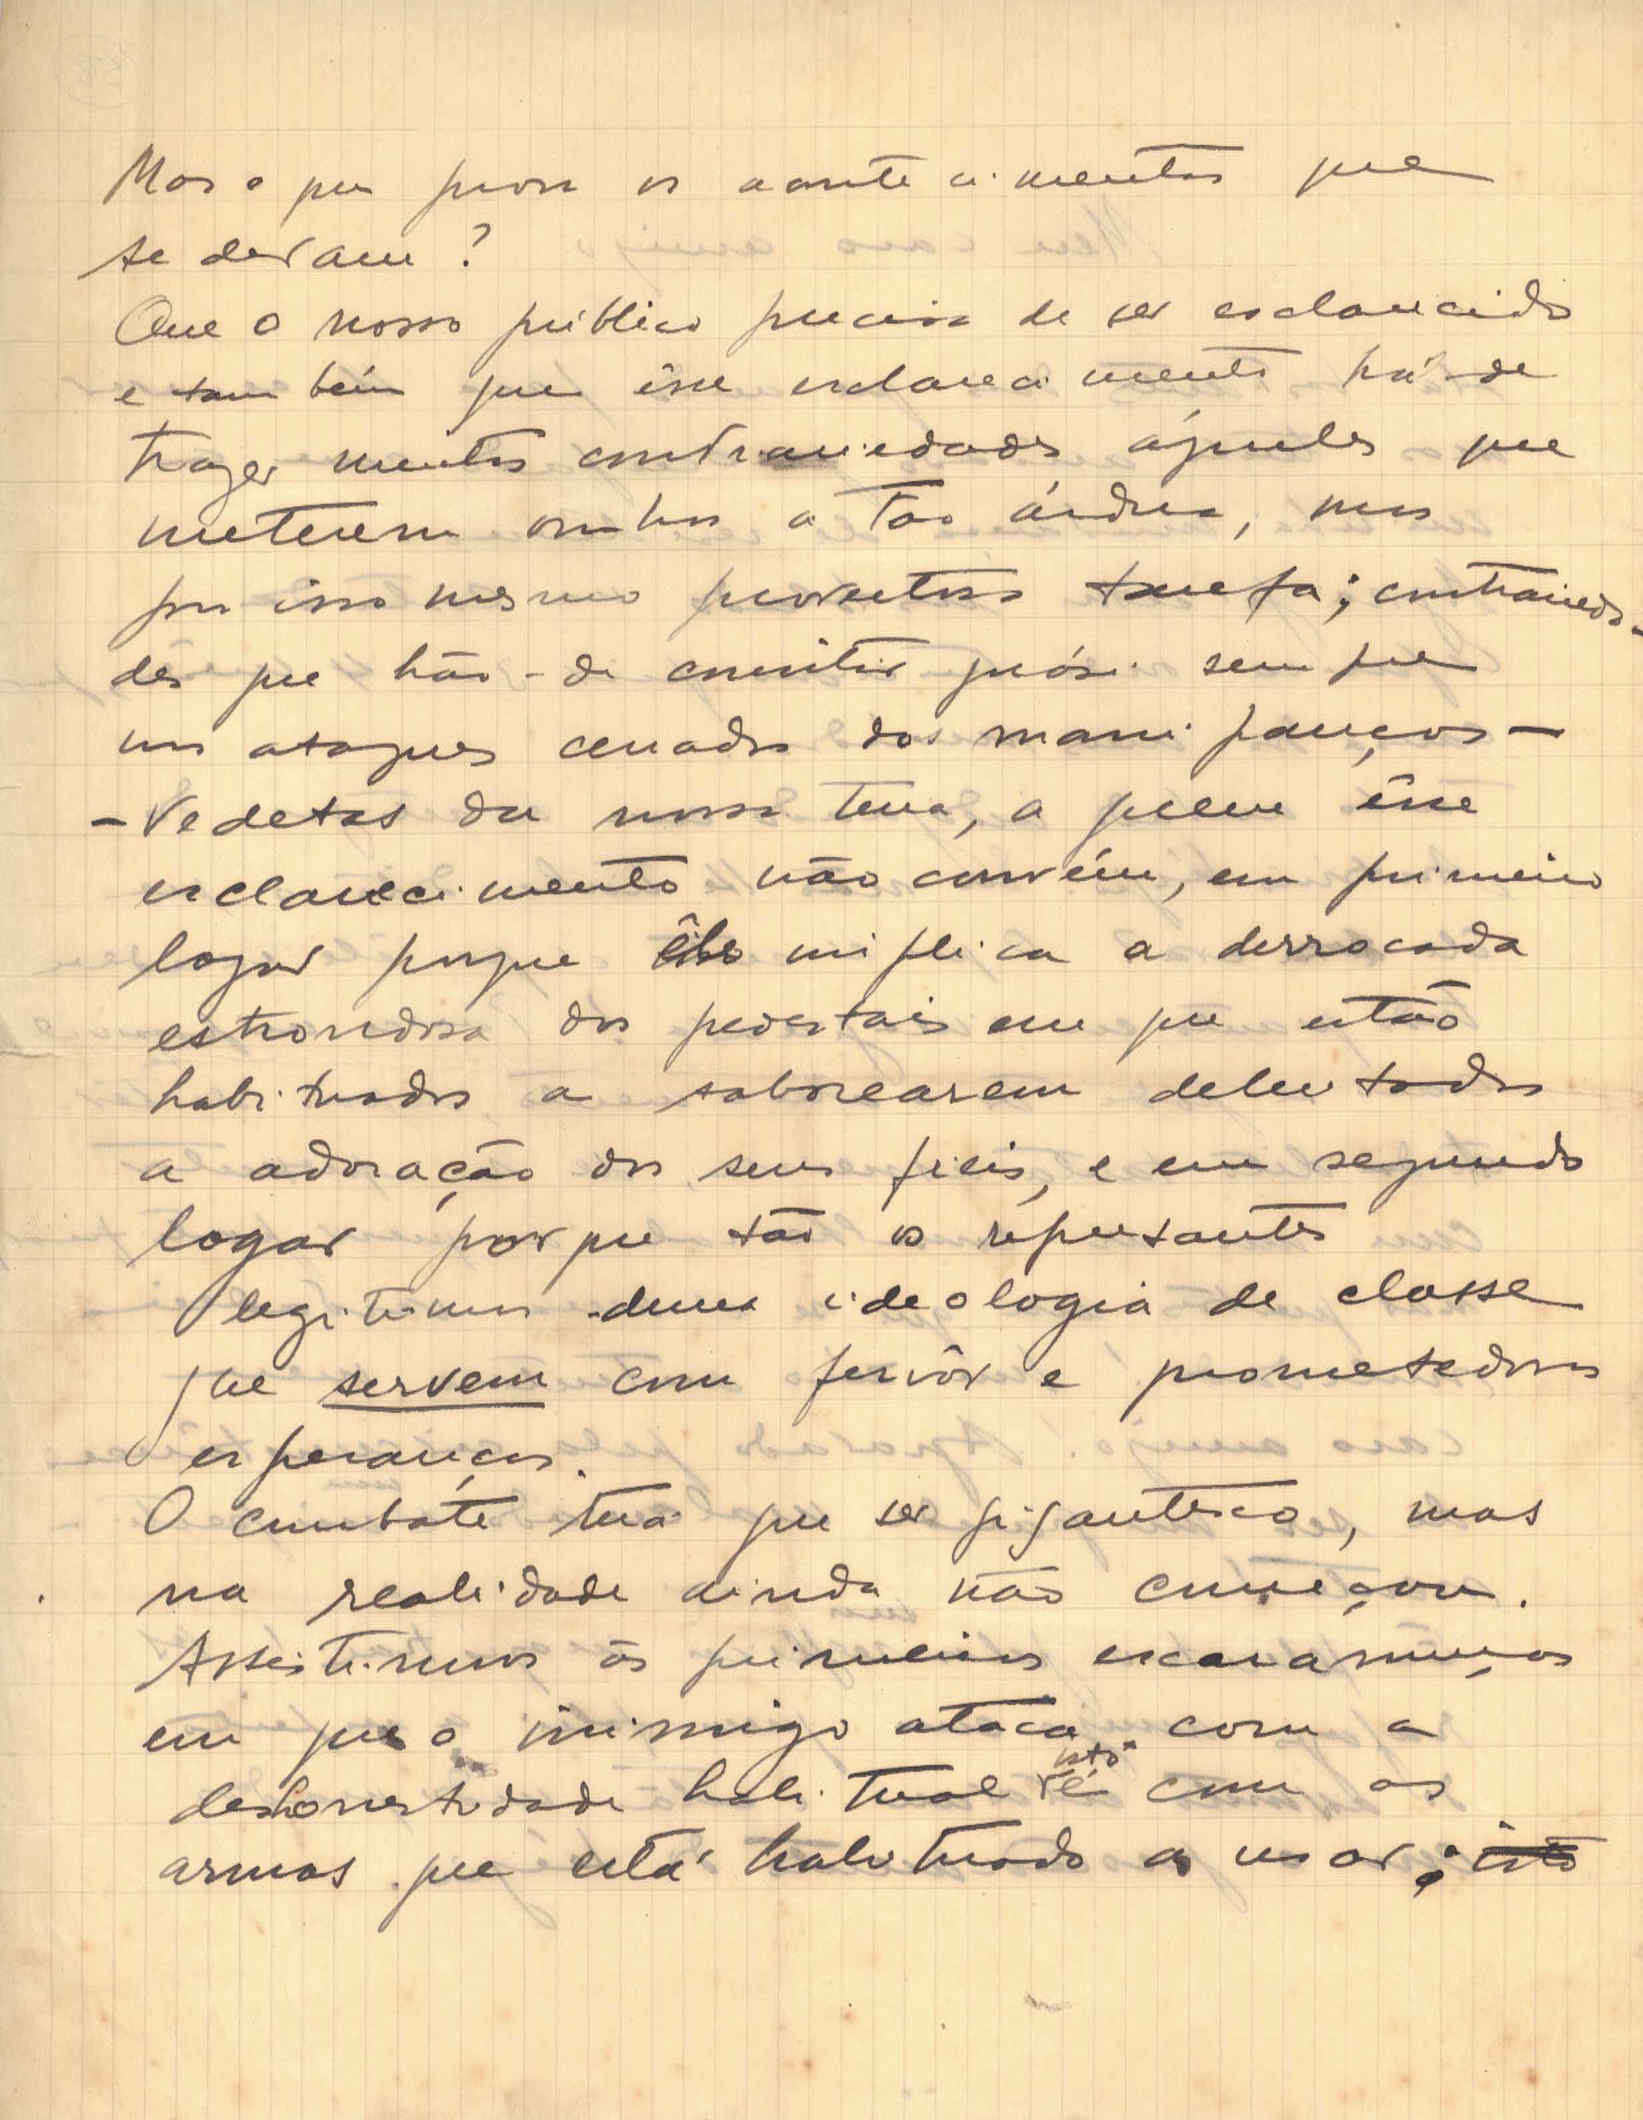 Mas o que prova os acontecimentos que
se deram?
Que o nosso público precisa de ser esclarecido
e também que êsse esclarecimento há-de
trazer muitas contrariedades áqueles que
meterem ombros a tão árdua, mas
por isso mesmo proveitosa tarefa; contrarieda-
des que hão-de consistir quási sempre
nos ataques cerrados dos manipanços-
-vedetas da nossa terra, a quem êsse
esclarecimento não convém, em primeiro
logar porque êle implica a derrocada
estrondosa dos pedestais em que estão
habituados a saborearem deleitados
a adoração dos seus fieis, e em segundo
logar porque são os repersantes
legitimos duma ideologia de classe
que servem com fervôr e prometedoras
esperanças.
O combate terá que ser gigantesco, mas
na realidade ainda não começou.
Assistimos ás primeiras escaramuças
em que o inimigo ataca com a
deshonestidade habitual isto é com as
armas que está habituado a usar; isto